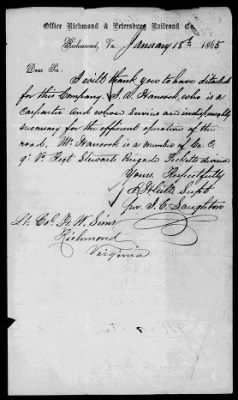 Office Richmond & Petersburg Railroad Co.
Richmond, Va. January 18th 1865
Dear Sir.
I will thank you to have detailed
for this Company J. A. Hancock, who is a
carpenter and whose services are indispensably
necessary for the efficient operation of the
road. Mr. Hancock is a member of Co. C
9' Va Regt Stewarts Brigade Picketts division
Yours Respectfully
Supt
per
Lt. Col. F. W. Sims
Richmond
Virginia